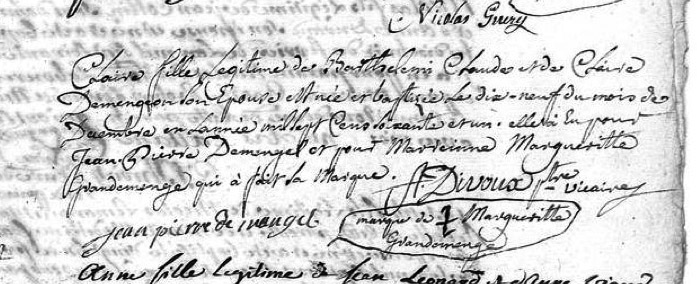 Nicolas Guery
Claire fille Legitime de Barthelemi Claude et de Claire
Demengeon son Epouse est née et baptisée Le dix-neuf du mois de
Decembre en L'année mil sept Cens soixante et un. elle a Eu pour
Jean-Pierre Demengel et pour Marreinne Margueritte
Grandemenge qui à fait sa Marque. Divoux ptre vicaire
jean pierre demangel
marque de Margueritte
Grandemenge
Anne fille legitime de Jean Leonard